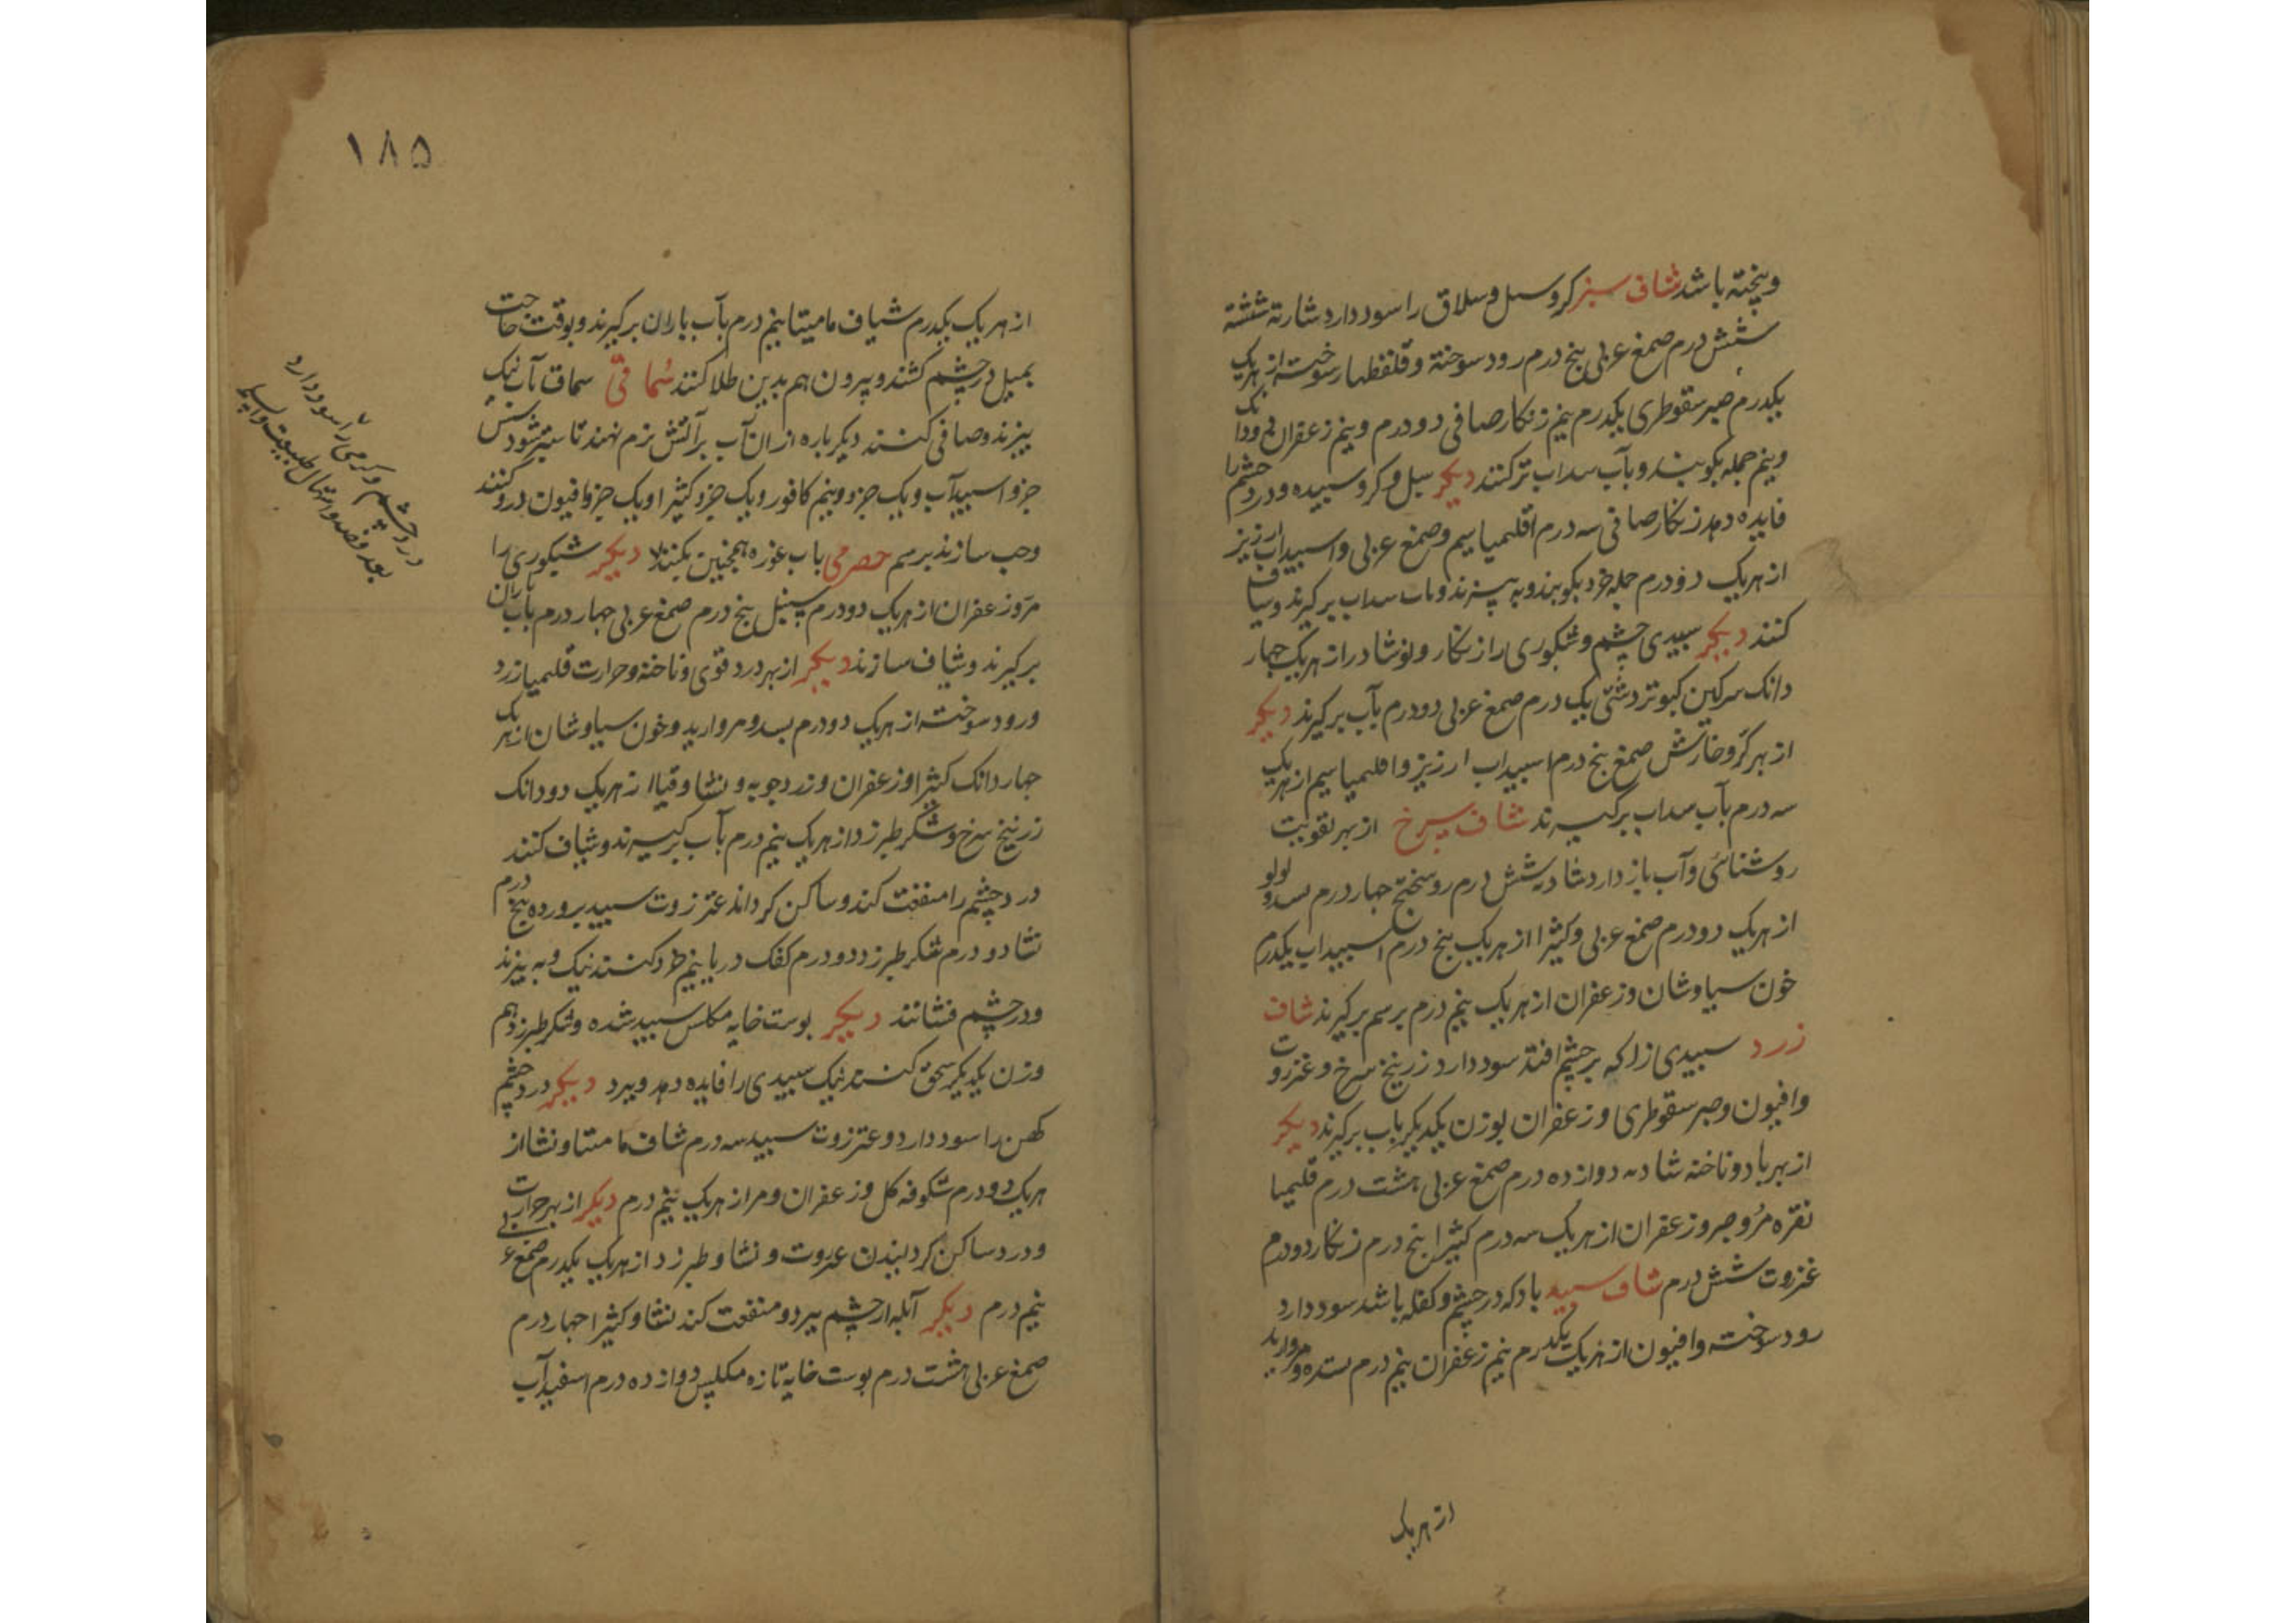 وپخته باشد شاف سبز کر و سبل و سلاق را سود دارد شادنه شسته
شش درم صمغ عربی پنج درم رود سوخته و قلقطار سوخته از هریک
یکدرم صبر سقوطری یکدرم نیم زنکار صافی دو درم و نیم زعفران
ونیم جمله بکوبند و بآب سداب تر کنند دیکر سبل و کر و سبیده و درد چشم را
فایده دهد زنکار صافی سه درم اقلیمیا سیم و صمغ عربی و اسبیداب ارزیز
از هریک دو درم جمله خرد بکوبند و به پیزند و بآب سداب برکیرند و شیاف
کنند دیکر سبیدی چشم و شبکوری را زنکار و نوشادر از هریک جهار
دانک سرکین کبوتر دشتی یک درم صمغ عربی دو درم بآب برکیرند دیکر
از بهر کر و خارش صمغ پنج درم اسبیداب ارزیز و اقلیمیا سیم از هریک
سه درم بآب سداب برکیرند شاف سرخ از بهر تقویت
روشنائی و آب باز دارد شادنه شش درم روسختج جهار درم بسد و لولو
از هریک دو درم صمغ عربی و کثیرا از هریک پنج درم اسبیداب یکدرم
خون سیاوشان و زعفران از هریک نیم درم برسم برکیرند شاف
زرد سبیدی را که بر چشم افتد سود دارد زرنیخ سرخ و عنزروت
وافیون و صبر سقوطری و زعفران بوزن یکدیکر بآب برکیرند دیکر
از بهر باد و ناخنه شادنه دوازده درم صمغ عربی هشت درم قلیمیا
نقره مُر و صبر و زعفران از هریک سه درم کثیرا پنج درم زنکار دو درم
عنزروت شش درم شاف سبید باد که در چشم و کفله باشد سود دارد
رود سوخته و افیون از هریک یکدرم نیم زعفران نیم درم بسد و مروارید
از هریک
١٨٥
از هریک یکدرم شیاف مامیثا نیم درم بآب باران برکیرند و بوقت حاجت
بمیل در چشم کشند و بیرون هم بدین طلا کنند سُماقیّ سماق بآب نیک
بپزند و صافی کنند دیکر باره از ان آب بر آتش نرم نهند تا ستبر شود شش
جزو اسبیدآب و یک جزو و نیم کافور و یک جزو کثیرا و یک جزو افیون درو کنند
وحب سازند برسم حصرمی بآب غوره همجنین بکنند دیکر شبکوری را
مرّ و زعفران از هریک دو درم سنبل پنج درم صمغ عربی جهار درم بآب باران
برکیرند و شیاف سازند دیکر از بهر درد قوی و ناخنه و حرارت قلیمیا زرد
ورود سوخته از هریک دو درم بسد و مروارید و خون سیاوشان از هریک
جهار دانک کثیرا و زعفران و زردجوبه و نشا و قیا از هریک دو دانک
زرنیخ سرخ و شکر طبرزد از هریک نیم درم بآب برکیرند و شیاف کنند
درد چشم را منفعت کند و ساکن کرداند عنزروت سبید برورده پنج درم
نشا دو درم شکر طبرزد دو درم کفک دریا نیم خرد کنند نیک و به پیزند
ودر چشم فشانند دیکر بوست خایه مکلس سبید شده و شکر طبرزد هم
وزن یکدیکر سحق کنند نیک سبیدی را فایده دهد و ببرد دیکر درد چشم
کهن را سود دارد و عنزروت سبید سه درم شاف مامیثا و نشا از
هریک دو درم شکوفه کل و زعفران و مر از هریک نیم درم دیکر از بهر حرارت
ودرد ساکن کردانیدن عنزروت و نشا و طبرزد از هریک یکدرم صمغ عربی
نیم درم دیکر آبله از چشم ببرد و منفعت کند نشا و کثیرا جهار درم
صمغ عربی هشت درم بوست خایه تازه مکلس دوازده درم اسفیدآب
درد چشم و کرمی را سود دارد
بعد فصد و اسهال طبیعت